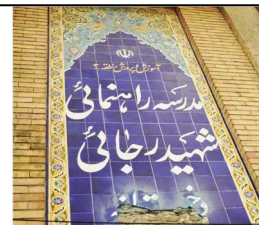 آموزش و پرورش منطقه ۳
مدرسه راهنمائی
شهید رجائی